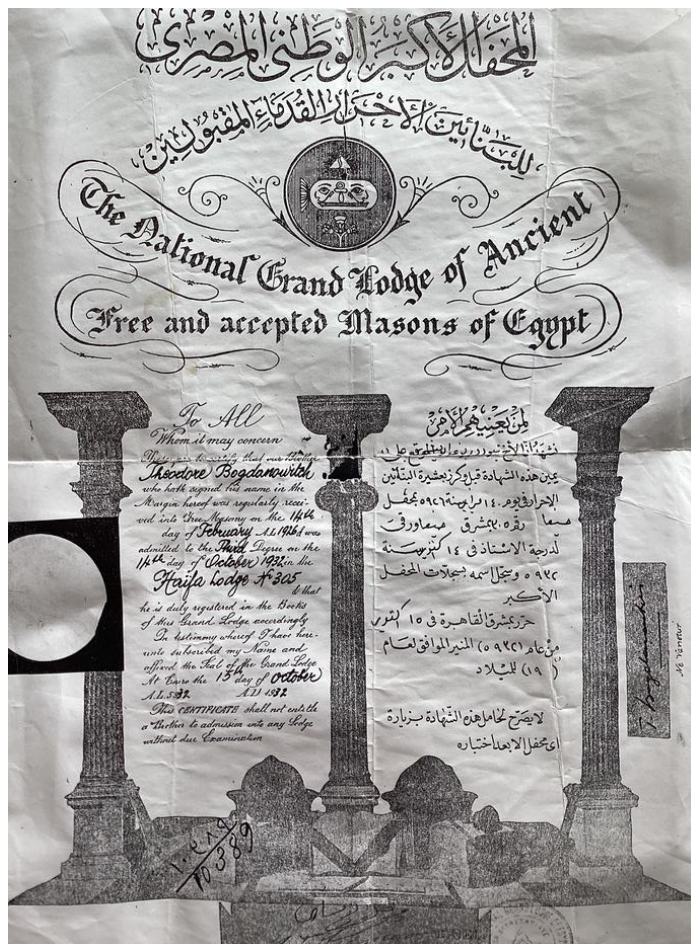 المحفل الأكبر الوطني المصري
للبنائين الأحرار القدماء المقبولين
The National Grand Lodge of Ancient
Free and accepted Masons of Egypt
To All
Whom it may concern
These are to certify that our Brother
Theodore Bogdanowitch
who hath signed his name in the
Margin hereof was regularly recei-
ved into Free Masonry on the 14th
day of February A.L. 1926 & was
admitted to the Third Degree on the
14th day of October 1932 in the
Haifa Lodge No 305
& that
he is duly registered in the Books
of this Grand Lodge accordingly
In testimony whereof I have here-
unto subscribed my Name and
affixed the Seal of the Grand Lodge
At Cairo the 15th day of October
A.L. 5932 A.D. 1932
This CERTIFICATE shall not entitle
a Brother to admission into any Lodge
without due Examination
لمن يعنيهم الأمر
يمين هذه الشهادة قبل وكرز بعشيرة البنائين
الاحرار في يوم ١٤ فبراير سنة ٥٩٢٦ بمحفل
لدرجة الاستاذ في ١٤ اكتوبر سنة
٥٩٣٢ وسجل اسمه بسجلات المحفل
الأكبر
حرر بمشرق القاهرة في ١٥ اكتوبر
من عام ٥٩٣٢ المنير الموافق لعام
(١٩) للميلاد
لا يصرح لحامل هذه الشهادة بزيارة
اى محفل الا بعد اختباره
Ne Varietur
10389